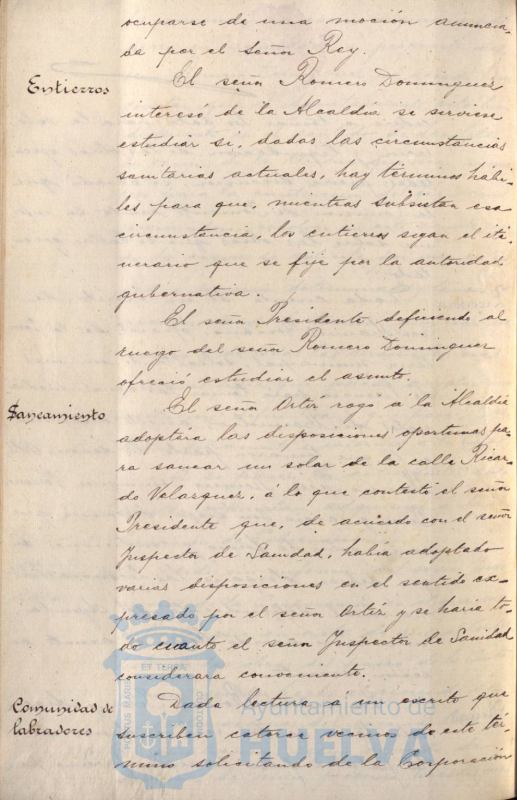 ocuparse de una moción anuncia-
da por el Señor Rey.
Entierros
El señor Romero Dominguez
interesó de la Alcaldía se sirviese
estudiar si, dadas las circunstancias
sanitarias actuales, hay términos hábi-
les para que, mientras subsistan esa
circunstancia, los entierros sigan el iti-
nerario que se fije por la autoridad
gubernativa.
El señor Presidente defiriendo al
ruego del señor Romero Dominguez
ofreció estudiar el asunto.
Saneamiento
El señor Ortíz rogó á la Alcaldía
adoptára las disposiciones oportunas pa-
ra sanear un solar de la calle Ricar-
do Velazquez, á lo que contestó el señor
Presidente que, de acuerdo con el señor
Inspector de Sanidad, había adoptado
varias disposiciones en el sentido ex-
presado por el señor Ortíz y se haria to-
do cuanto el señor Inspector de Sanidad
considerara conveniente.
Comunidad de
labradores
Dada lectura a un escrito que
suscriben catorce vecinos de este tér-
mino solicitando de la Corporación
Ayuntamiento de
HUELVA
PORTUS MARIS
ET TERRAE
CUSTODIA